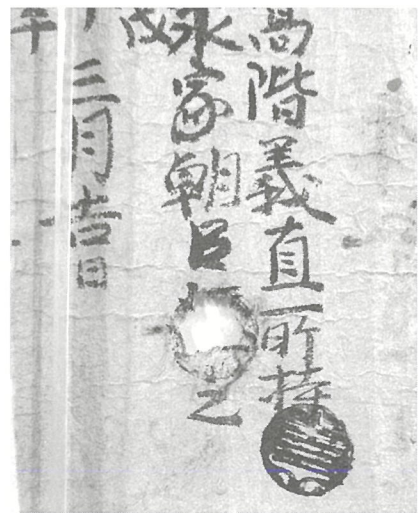 高階義直所持
永家朝臣 之
三月吉日